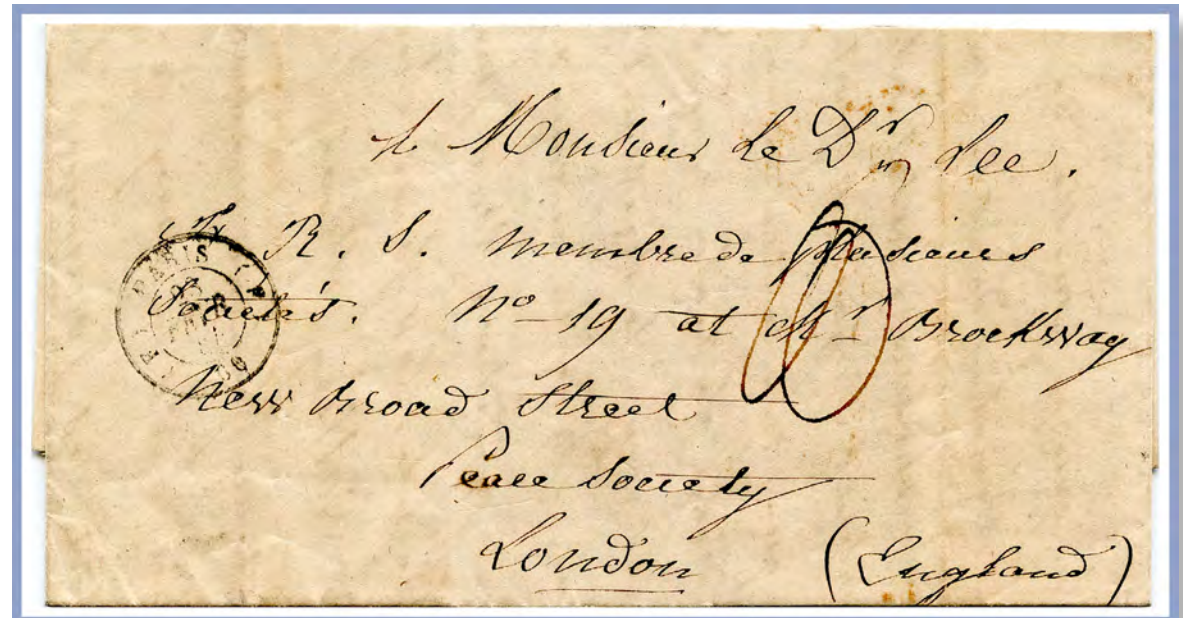 à Monsieur Le Dr Lee.
F. R. S. membre de plusieurs
Societés. No 19 at Mr Brockway
New Broad Street
Peace Society
London (England)
PARIS